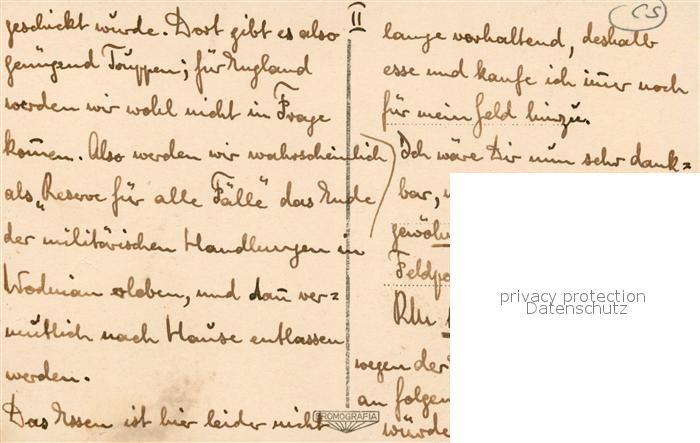 II
CS
geschickt wurde. Dort gibt es also
genügend Truppen; für England
werden wir wohl nicht in Frage
kom̄en. Also werden wir wahrscheinlich
als „Reserve für alle Fälle" das Ende
der militärischen Handlungen in
Wodnian erleben, und dan̄ ver=
mutlich nach Hause entlassen
werden.
Das Essen ist hier leider nicht
lange vorhaltend, deshalb
esse und kaufe ich im̄er noch
für mein Geld hinzu.
Ich wäre Dir nun sehr dank=
bar,
gewöhn
Feldpo
RM
wegen der
an folgen
würde
BROMOGRAFIA
privacy protection
Datenschutz